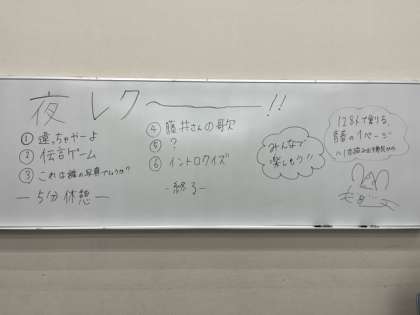 夜レク〜!!
① 違っちゃヤーよ
② 伝言ゲーム
③ これは誰の写真でしょうか?
―5分休憩―
④ 藤井さんの歌
⑤ ?
⑥ イントロクイズ
-終了-
みんなで
楽しもう!!
128人で創る、
青春の1ページ